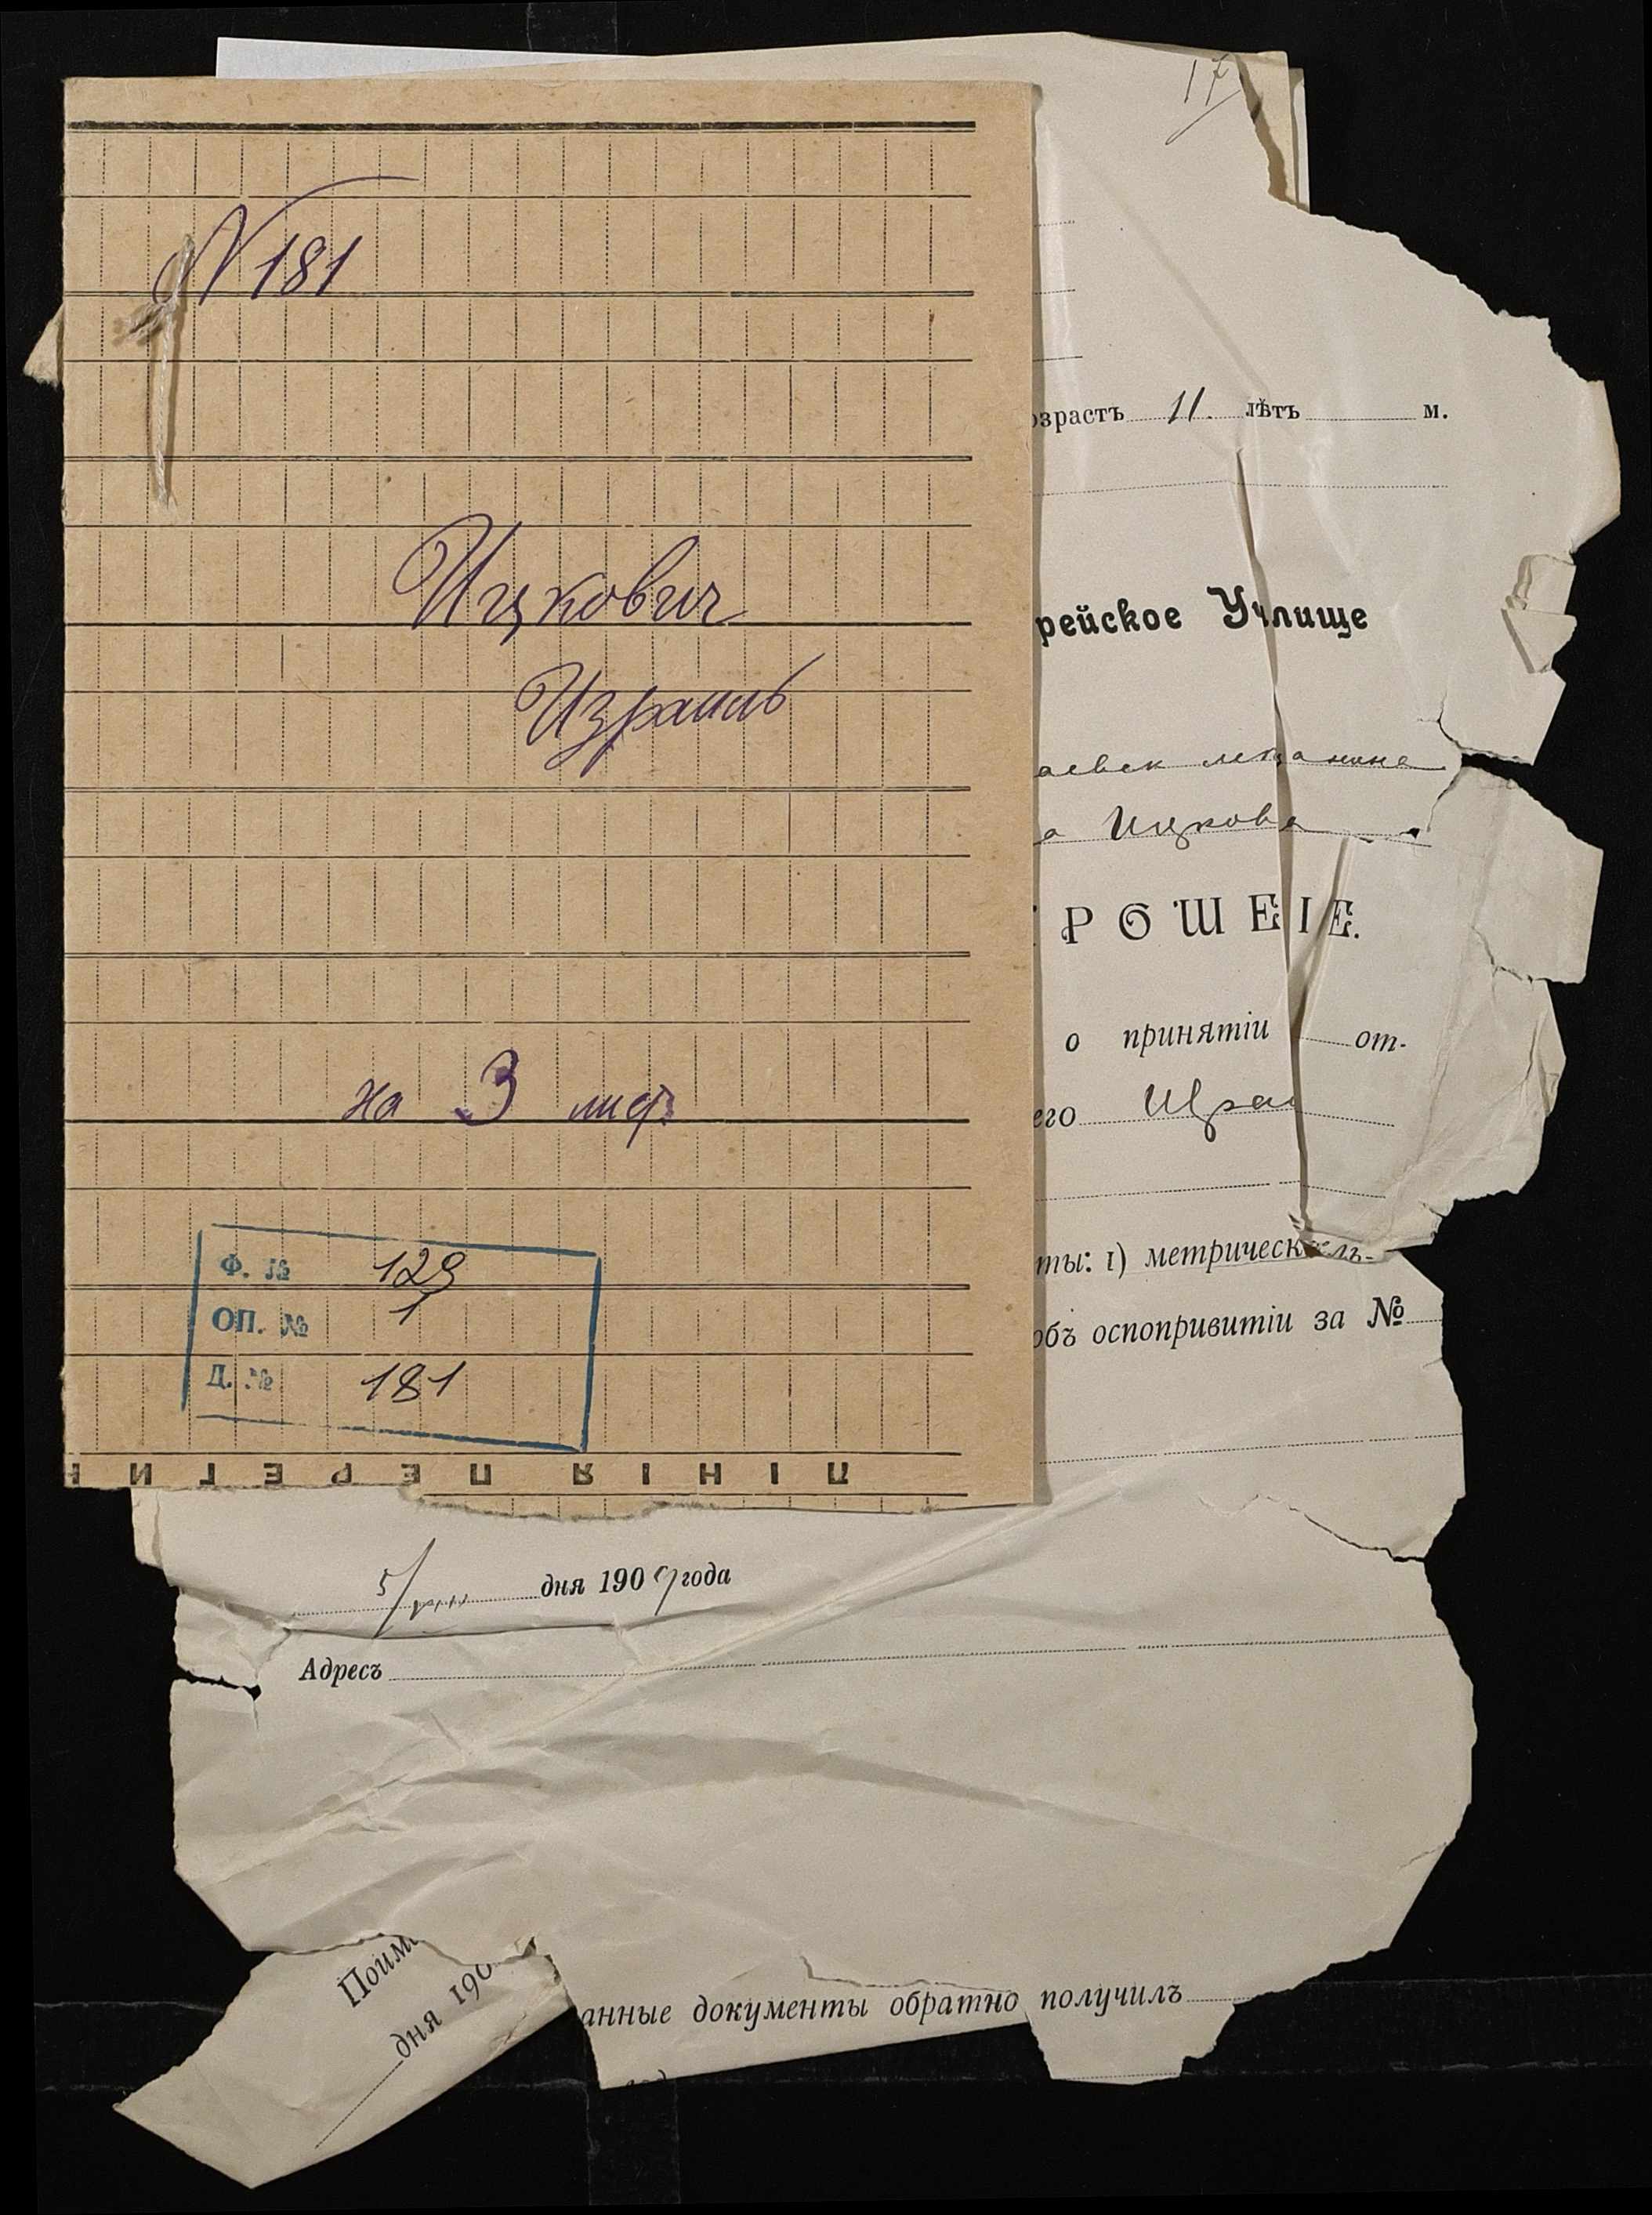 N 181
Ицкович
Израиль
на 3 лист.
Ф. № 129
ОП. № 1
Д. № 181
П И Н І Я П Е Р Е Г И
17
озрастъ 11. лѣтъ м.
рейское Училище
аевск мѣщанина
а Ицкова
Р О Ш Е І Е.
о принятіи от-
его Изра
ты: 1) метрическ ль-
объ оспопривитіи за №
5/ дня 1909 года
Адресъ
Поим
дня 190
анные документы обратно получилъ